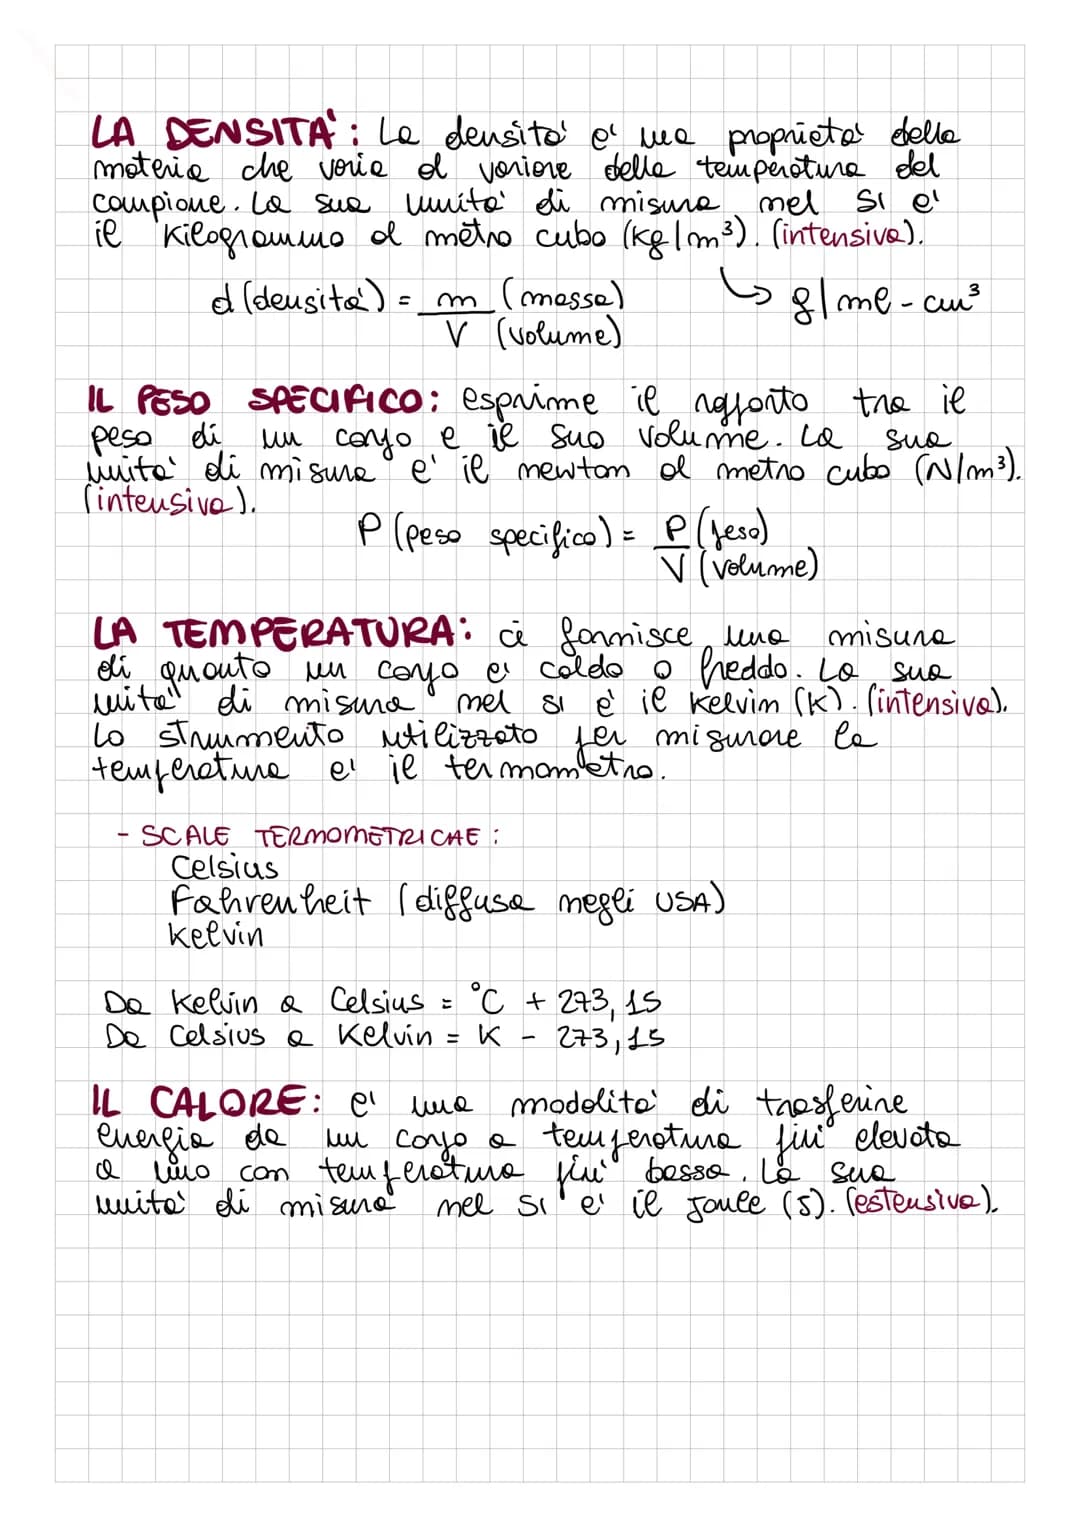 LA DENSITA': La densita' e' una proprieta' della
materia che varia al variare della temperatura del
campione. La sua unita' di misura nel SI e'
il Kilogrammo al metro cubo (kg/m³). (intensiva).
d (densita') = m (massa) ↳ g/ml - cm³
V (volume)
IL PESO SPECIFICO: esprime il rapporto tra il
peso di un corpo e il suo volume. La sua
unita' di misura e' il newton al metro cubo (N/m³).
(intensiva).
P (peso specifico) = P (peso)
V (volume)
LA TEMPERATURA: ci fornisce una misura
di quanto un corpo e' caldo o freddo. La sua
unita' di misura nel SI e' il Kelvin (K). (intensiva).
Lo strumento utilizzato per misurare la
temperatura e' il termometro.
- SCALE TERMOMETRICHE:
Celsius
Fahrenheit (diffusa negli USA)
Kelvin
Da Kelvin a Celsius = °C + 273,15
Da Celsius a Kelvin = K - 273,15
IL CALORE: e' una modalita' di trasferire
energia da un corpo a temperatura piu' elevata
a uno con temperatura piu' bassa. La sua
unita' di misura nel SI e' il Joule (J). (estensiva).